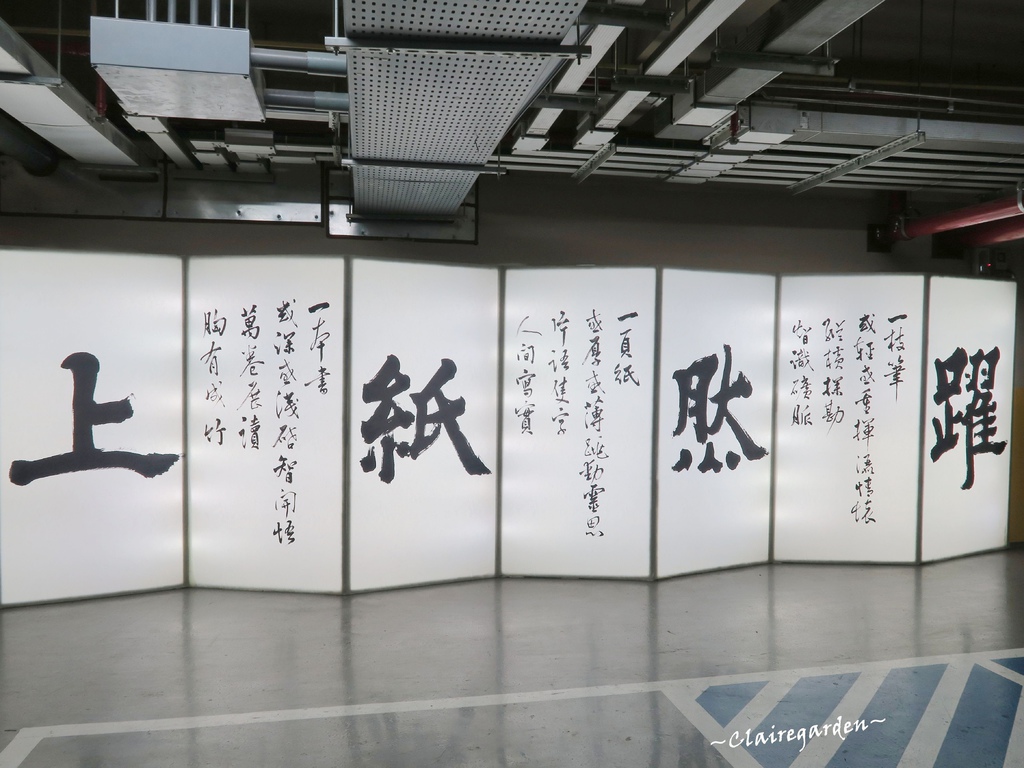 躍
一枝筆
或輕或重揮灑情懷
縱橫探勘
智識礦脈
然
一頁紙
或厚或薄跳動靈思
字語佳字
人間寫實
紙
一本書
或深或淺啓智開悟
萬卷展讀
胸有成竹
上
~Clairegarden~